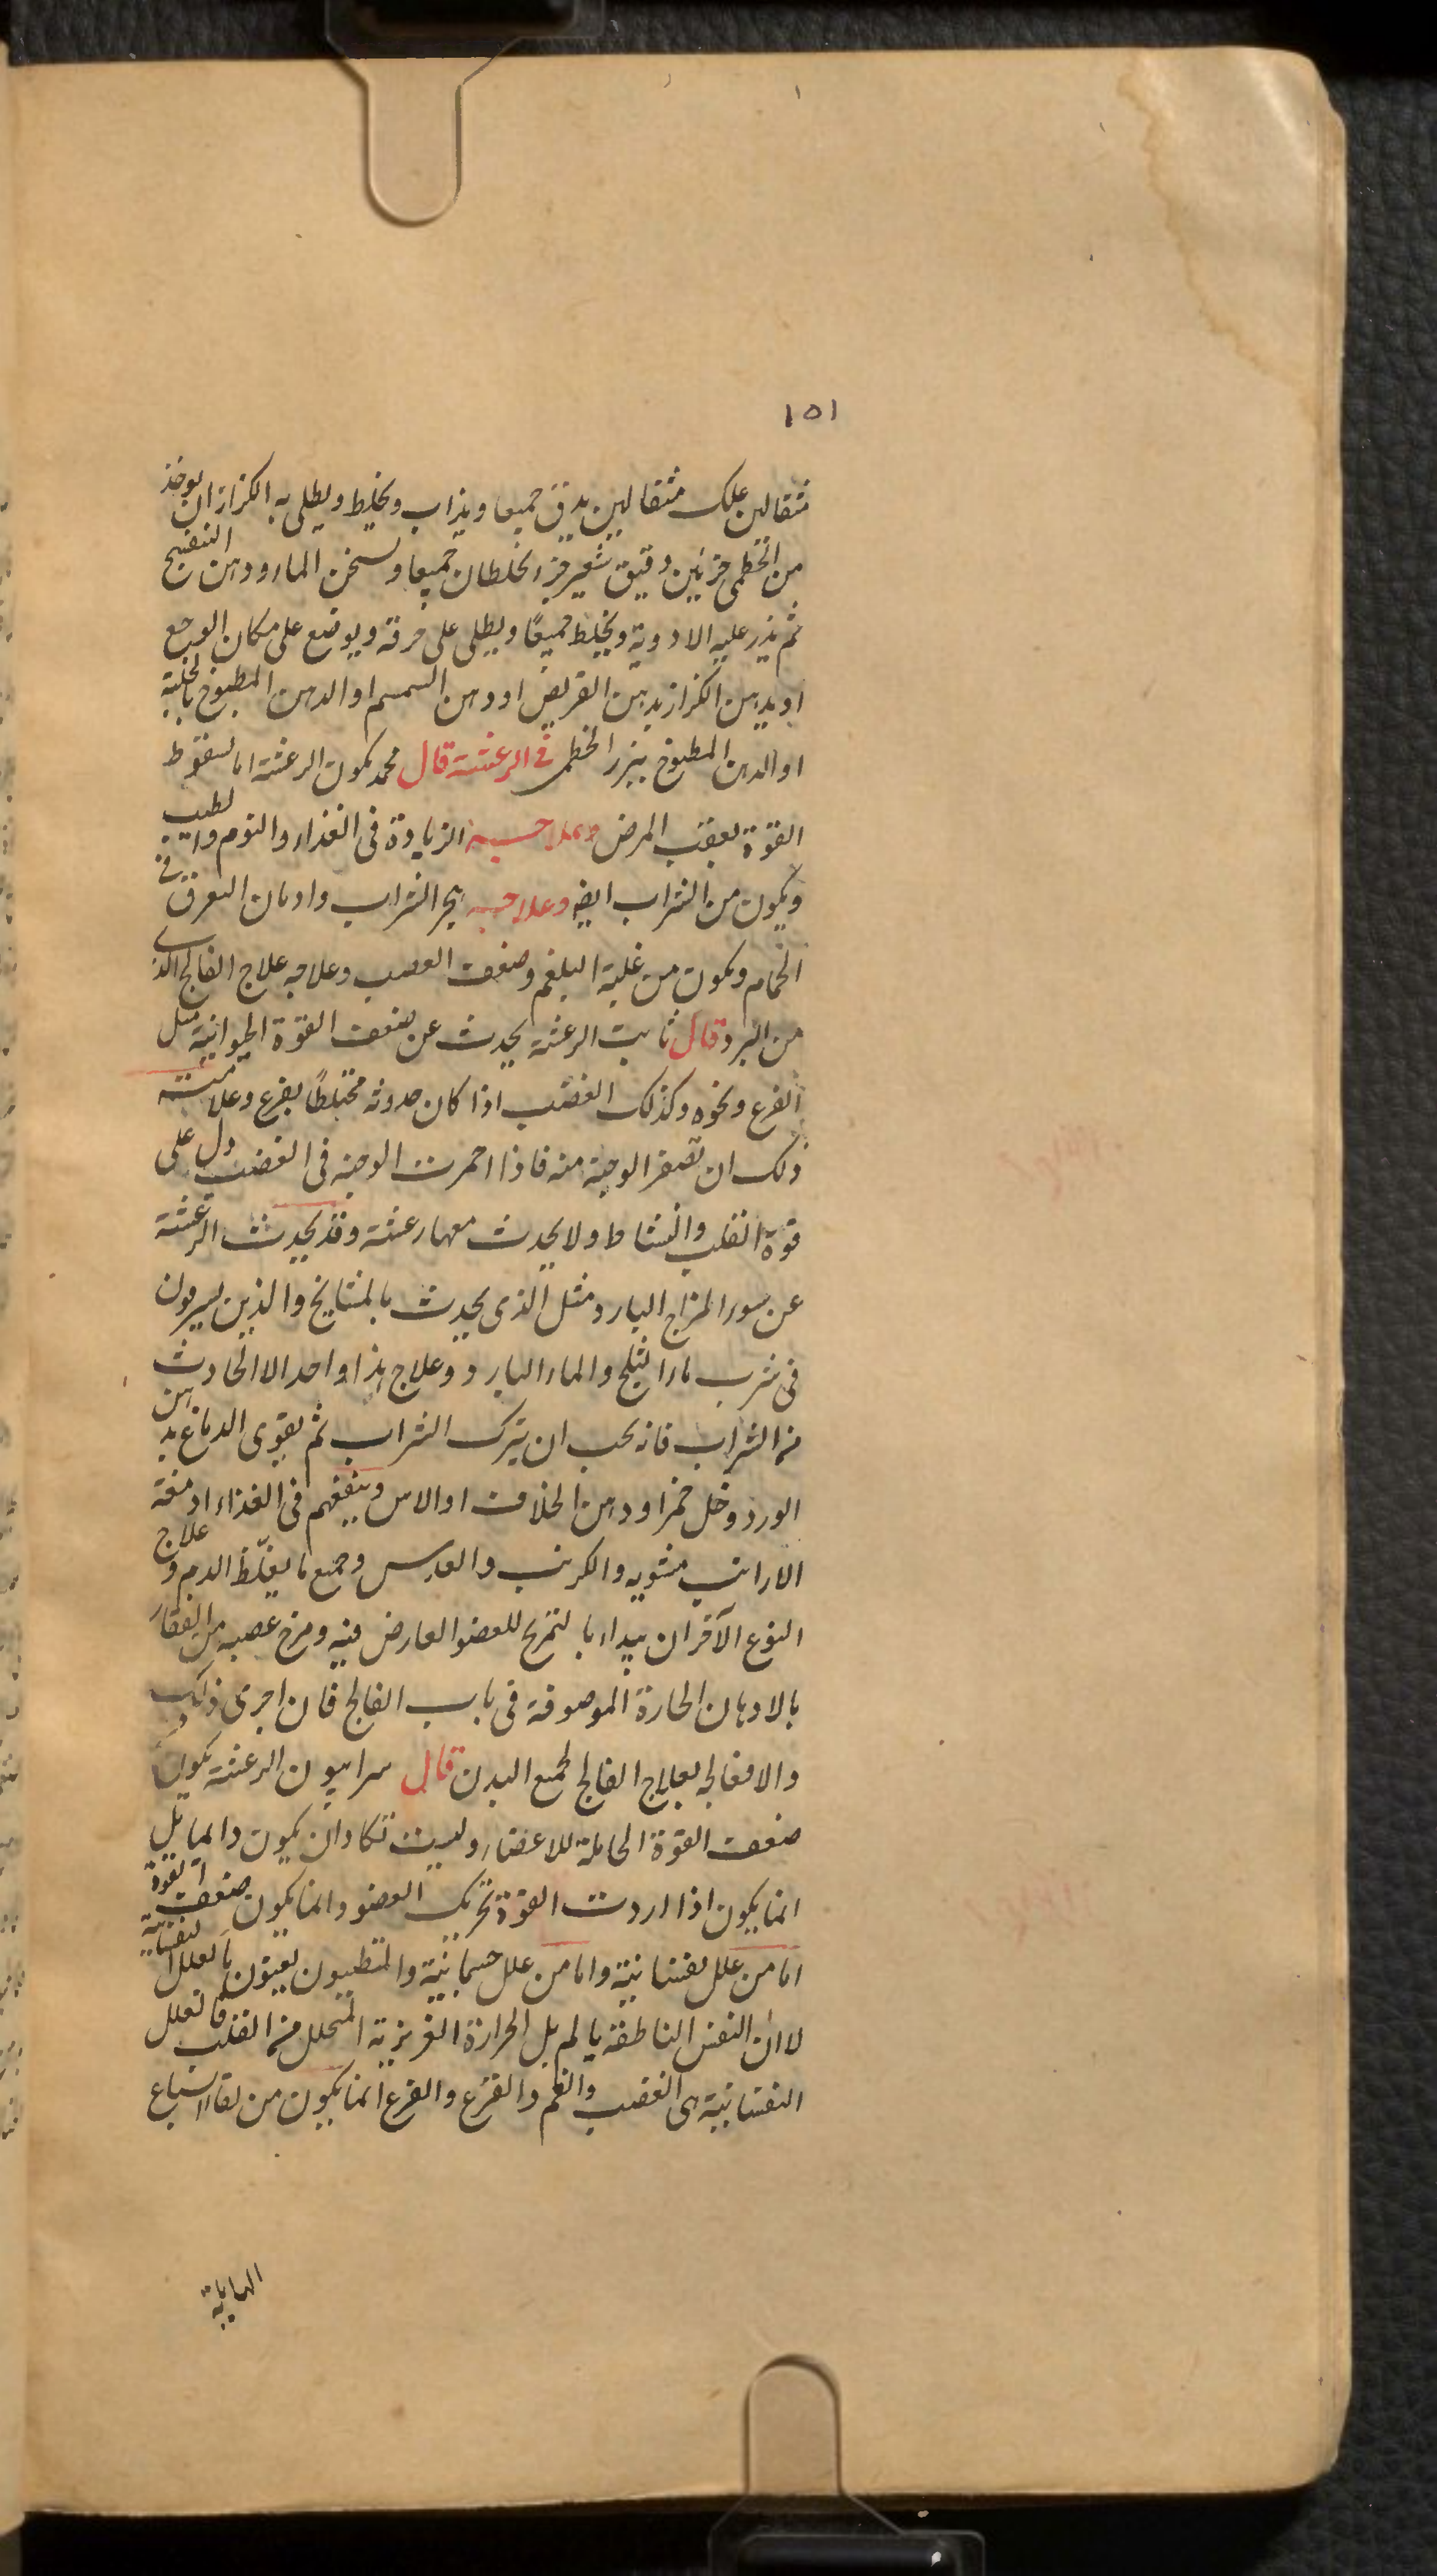 ١٥١
مثقالين علك مثقالين يدق جميعا ويذاب ويخلط ويطلى به الكزاز ان يوخذ
من الخطمى جزئين دقيق شعير جزء يخلطان جميعا ويسخن الماء ودهن البنفسج
ثم يذر عليه الادوية ويخلط جميعًا ويطلى على خرقة ويوضع على مكان الوجع
او يدهن الكزاز بدهن القريض او دهن السمسم او الدهن المطبوخ بالحلبة
او الدهن المطبوخ ببزر الخطمى فى الرعشة قال محمد يكون الرعشة اما لسقوط
القوة بعقب المرض وعلاجه الزيادة فى الغذاء والنوم والطيب
ويكون من الشراب ايضا وعلاجه هجر الشراب وادمان التعرق فى
الحمام ويكون من غلبة البلغم وضعف العصب وعلاجه علاج الفالج الذى
من البرد قال ثابت الرعشة يحدث عن ضعف القوة الحيوانية مثل
الفزع ونحوه وكذلك الغضب اذا كان حدوثه مختلطًا بفزع وعلامته
ذلك ان تصفر الوجنة منه فاذا احمرت الوجنة فى الغضب دل على
قوة القلب والنشاط ولا يحدث معها رعشة وقد يحدث الرعشة
عن سوء المزاج البارد مثل الذى يحدث بالمشايخ والذين يسرفون
فى شرب ماء الثلج والماء البارد وعلاج هذا واحد الا الحادث
من الشراب فانه يجب ان يترك الشراب ثم يقوى الدماغ بدهن
الورد وخل خمر او دهن الخلاف او الاس وينفعهم فى الغذاء ادمغة
الارانب مشويه والكرنب والعدس وجميع ما يغلّظ الدم وعلاج
النوع الآخر ان يبداء بالتمريخ للعضو العارض فيه ومخرج عصبه من الفقار
بالادهان الحارة الموصوفة فى باب الفالج فان اجزى ذلك
والا فعالجه بعلاج الفالج لجميع البدن قال سرابيون الرعشة يكون
ضعف القوة الحاملة للاعضاء وليست تكاد ان يكون دائما بل
انما يكون اذا ارادت القوة تحريك العضو وانما يكون ضعف القوة
اما من علل نفسانية واما من علل جسمانية والمتطببون يعنون بالعلل النفسانية
لا ان النفس الناطقة يالم بل الحرارة الغريزية المتحلل من القلب فالعلل
النفسانية هى الغضب والغم والفزع والفزع انما يكون من لقاء السباع
الهايلة